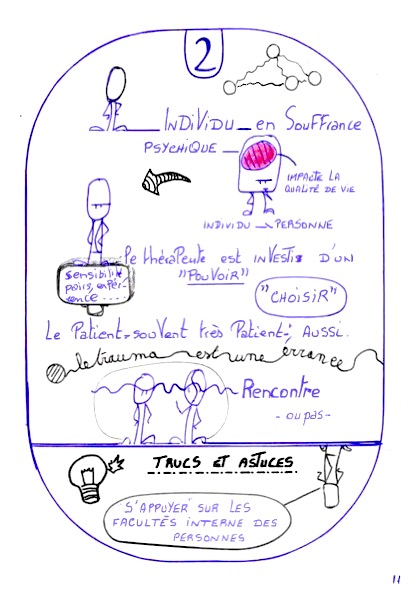 2
INDIVIDU en SOUFFRANCE
PSYCHIQUE
IMPACTE LA
QUALITÉ DE VIE
INDIVIDU PERSONNE
le thérapeute est investi D'UN
"POUVOIR"
sensibilité
pairs, expér-
ience....
"CHOISIR"
Le Patient-souvent très Patient-: AUSSI.
le trauma est une errance
Rencontre
- ou pas -
TRUCS ET ASTUCES
S'APPUYER SUR LES
FACULTÉS INTERNE DES
PERSONNES
11